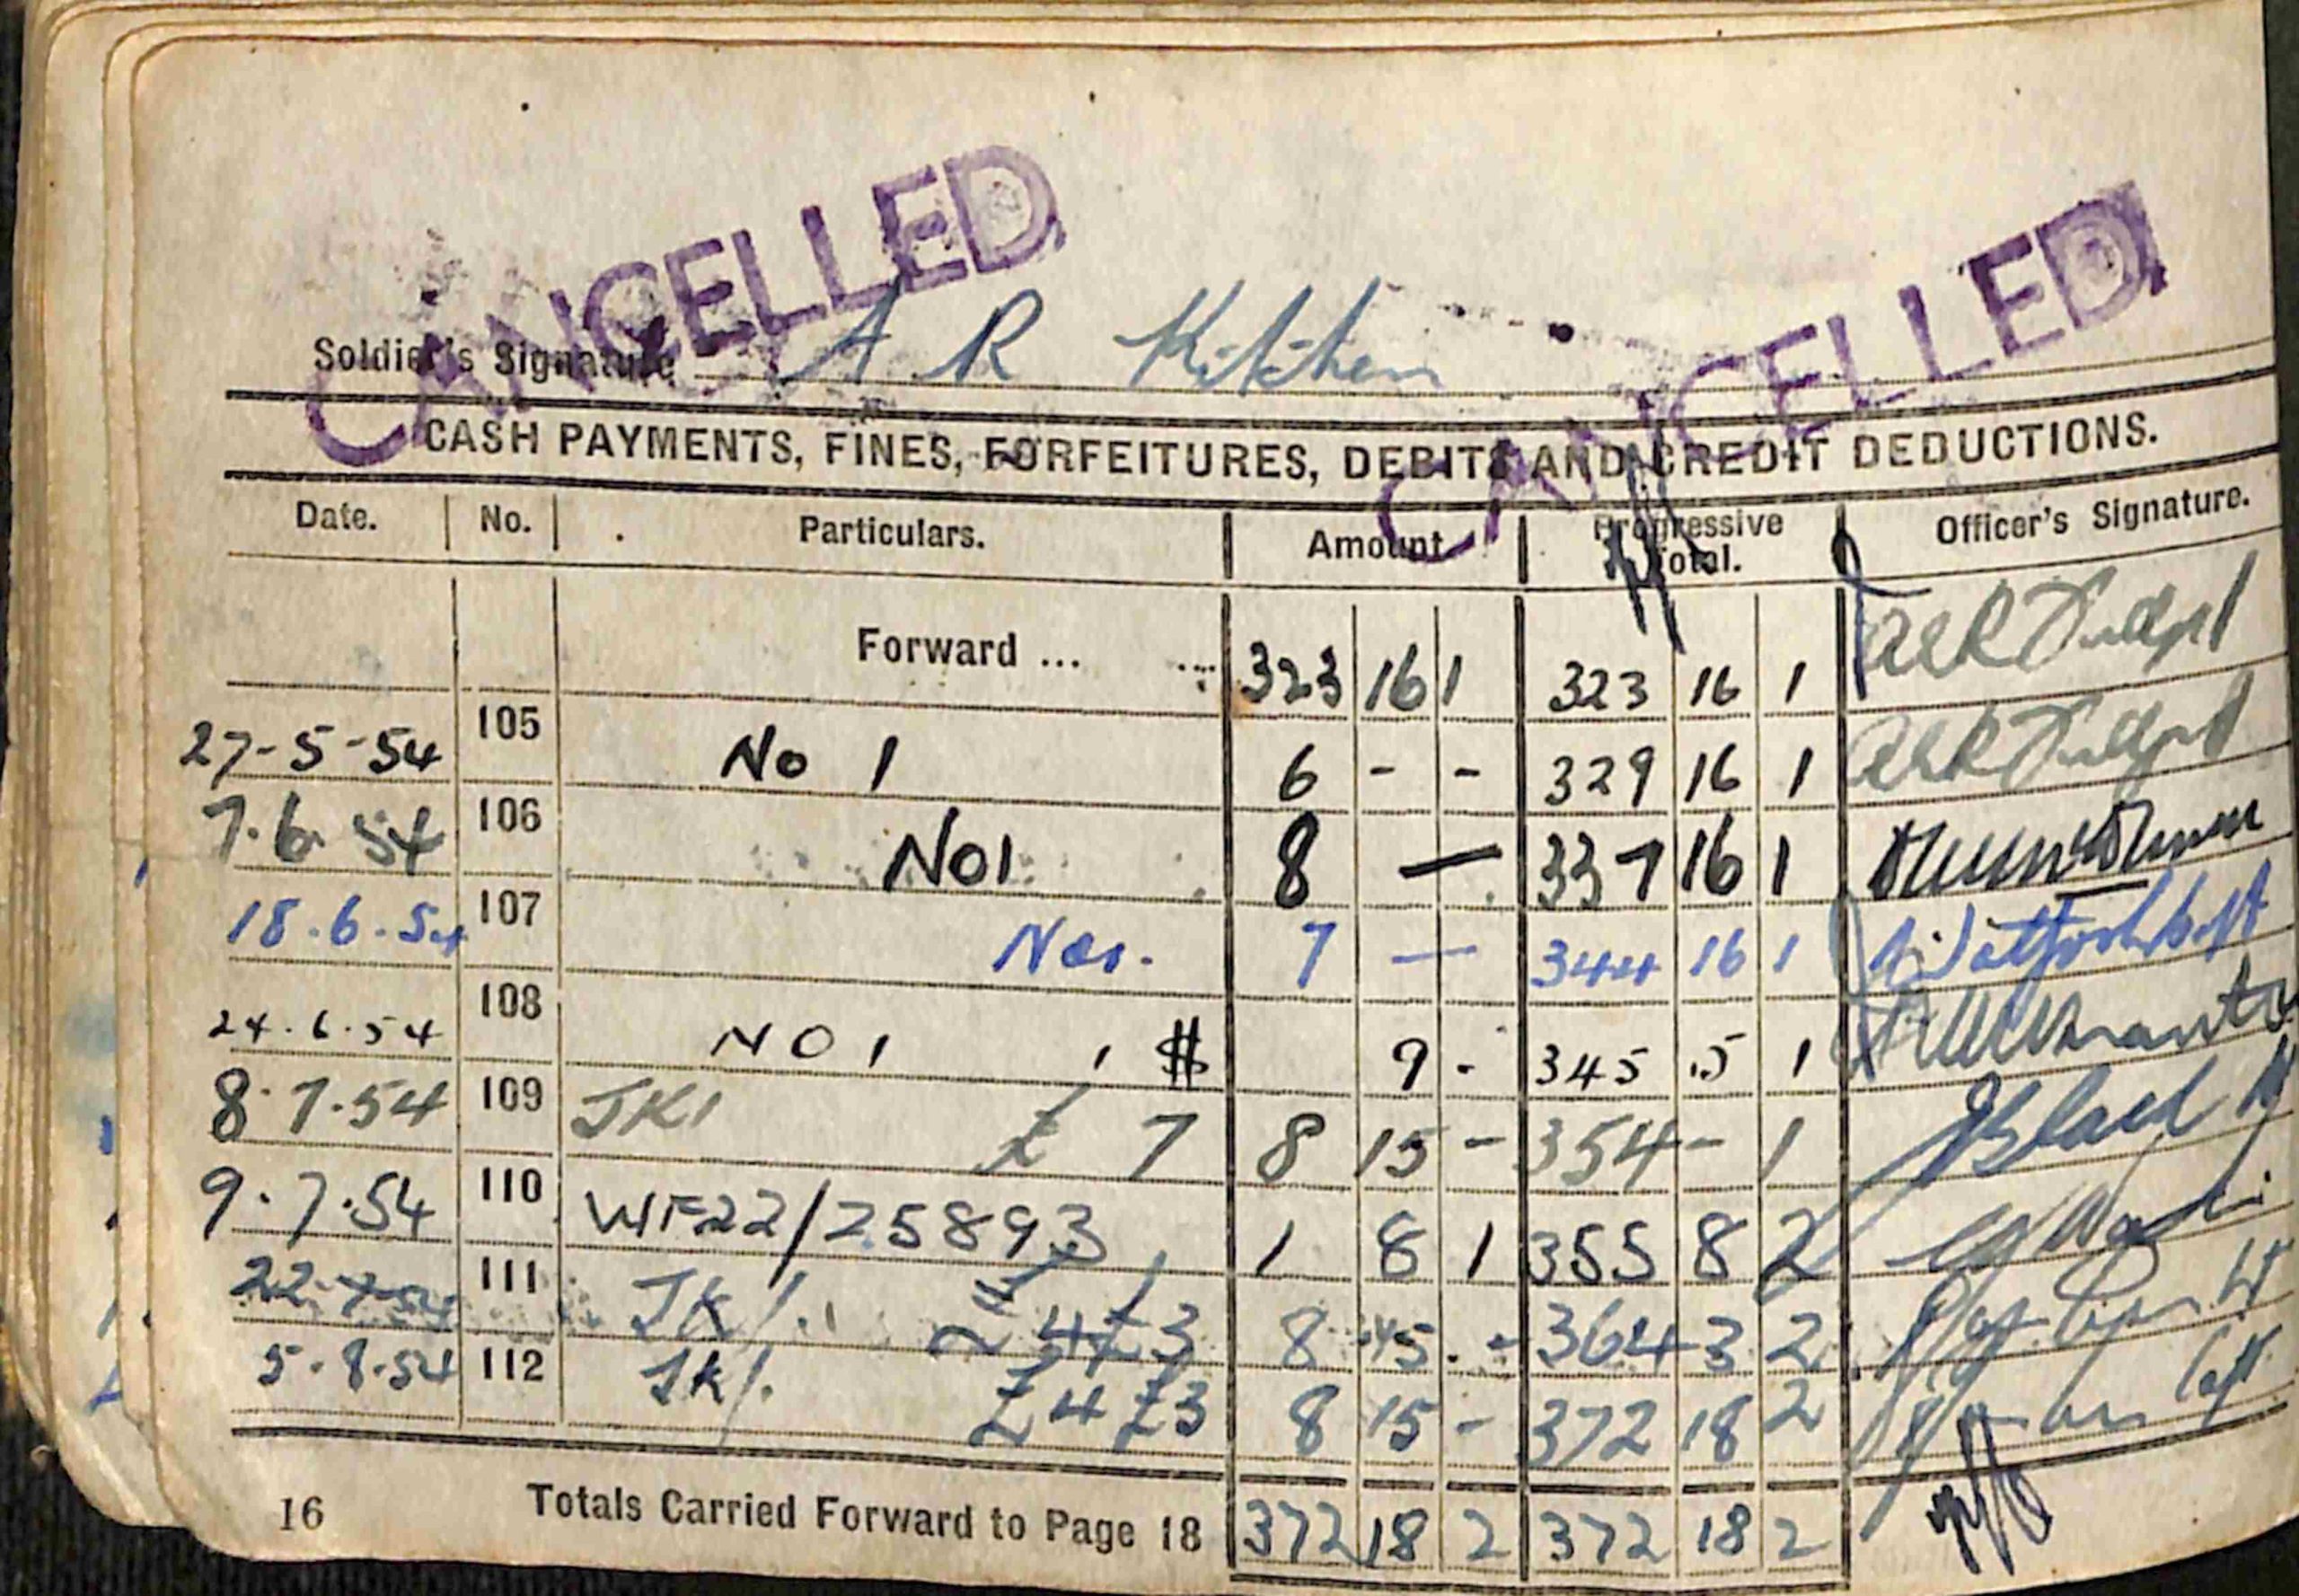 CANCELLED
CANCELLED
Soldier's Signature A R Kitchen
CASH PAYMENTS, FINES, FORFEITURES, DEBITS AND CREDIT DEDUCTIONS.
Date. No. Particulars. Amount Progressive Total. Officer's Signature.
Forward ... ... 323 16 1 323 16 1
27-5-54 105 No 1 6 - - 329 16 1
7.6.54 106 No1 8 — 337 16 1
18.6.54 107 No1. 7 — 344 16 1
24.6.54 108 NO1 1 $ 9 - 345 5 1
8.7.54 109 JK1 £ 7 8 15 - 354 - 1
9.7.54 110 WF22/25893 1 8 1 355 8 2
22-7-54 111 JK/. £4 £3 8 15 - 364 3 2
5.8.54 112 JK/. £4 £3 8 15 - 372 18 2
16 Totals Carried Forward to Page 18 372 18 2 372 18 2